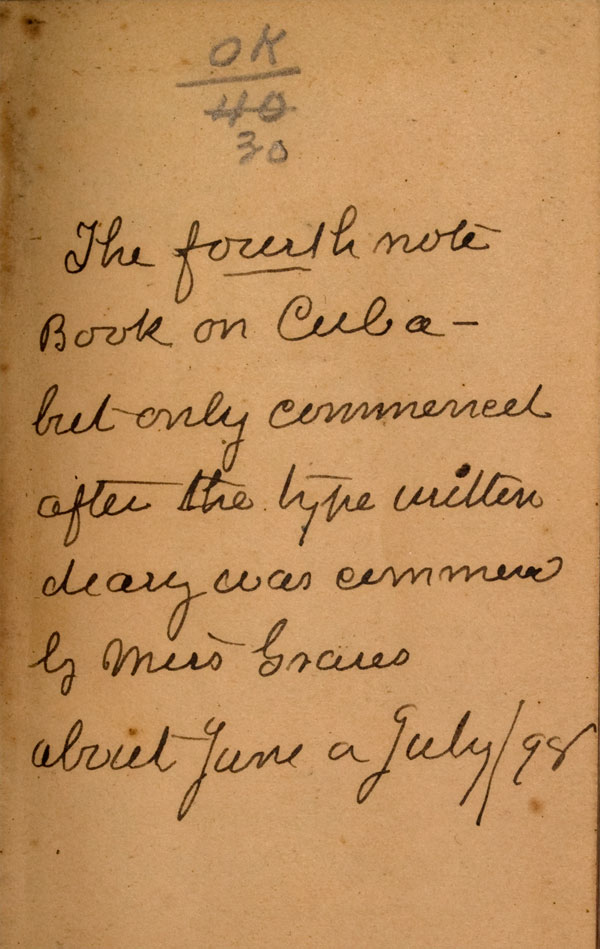 OK
40
30
The fourth note
Book on Cuba –
but only commenced
after the type written
deary was commen
by Miss Graves
about June a July/98